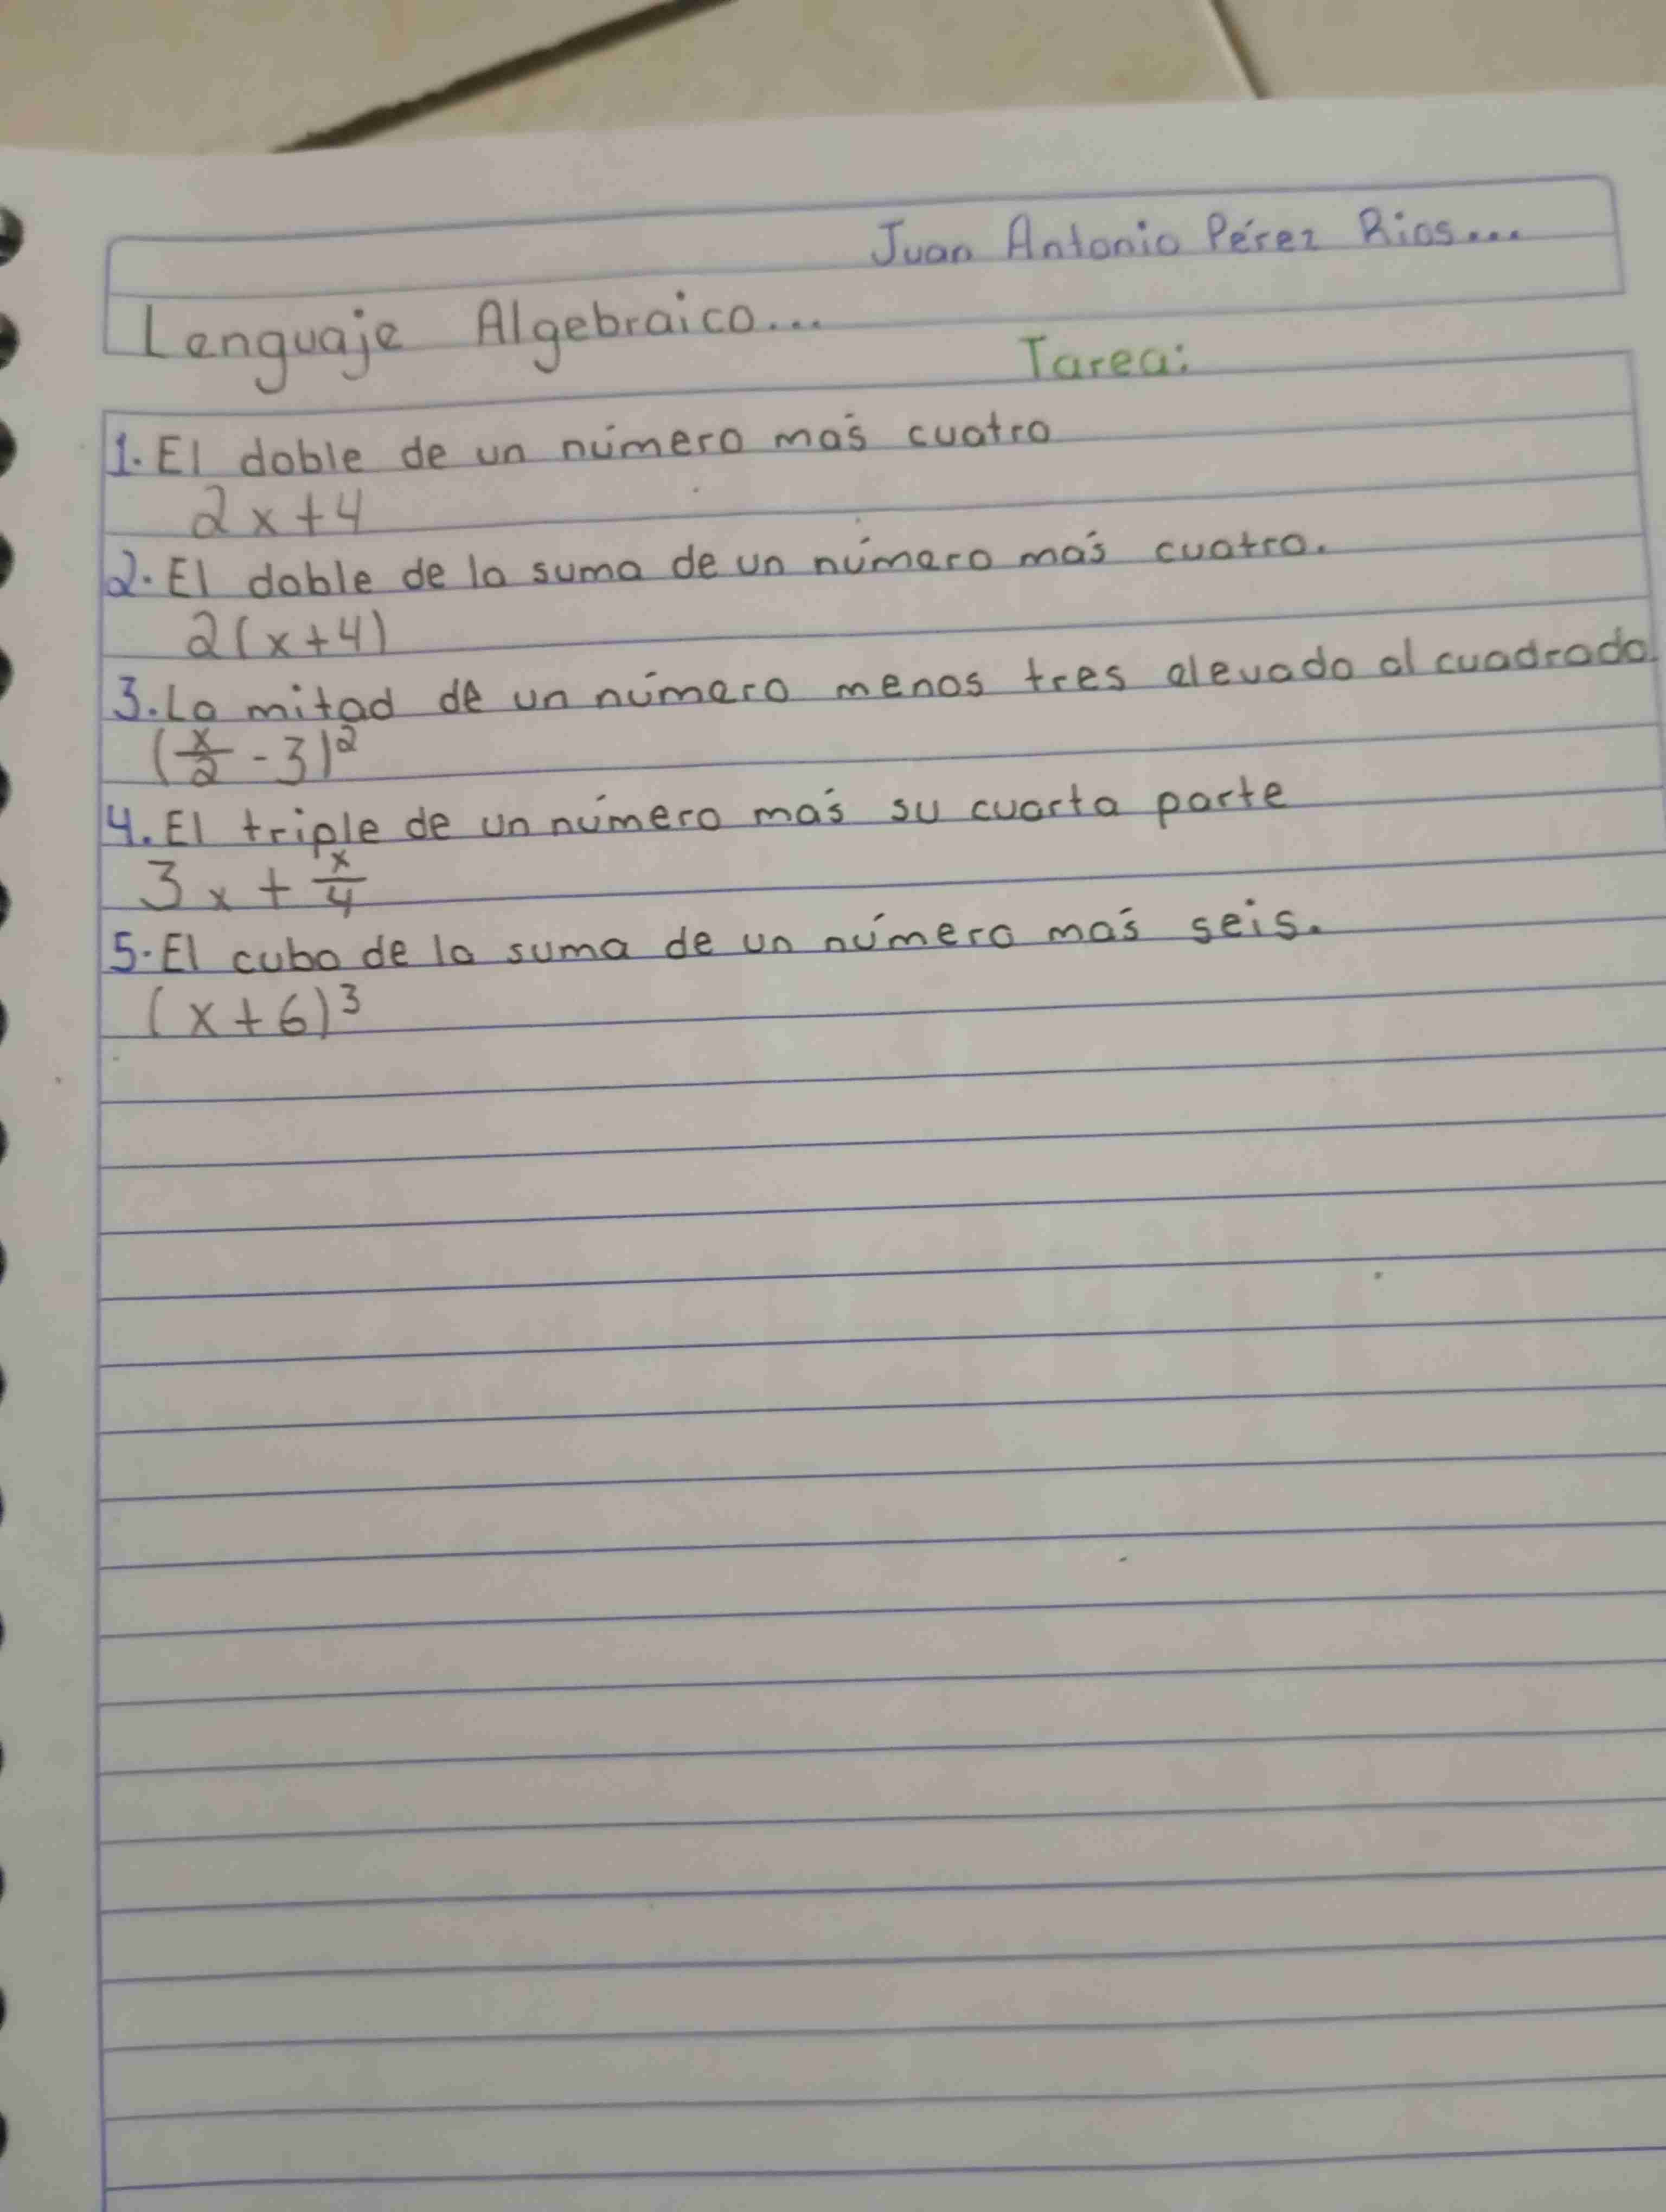 Juan Antonio Pérez Rios...
Lenguaje Algebraico...
Tarea:
1. El doble de un número más cuatro
2x+4
2. El doble de la suma de un número más cuatro.
2(x+4)
3. La mitad de un número menos tres elevado al cuadrado.
(x/2 - 3)²
4. El triple de un número más su cuarta parte
3x + x/4
5. El cubo de la suma de un número más seis.
(x+6)³